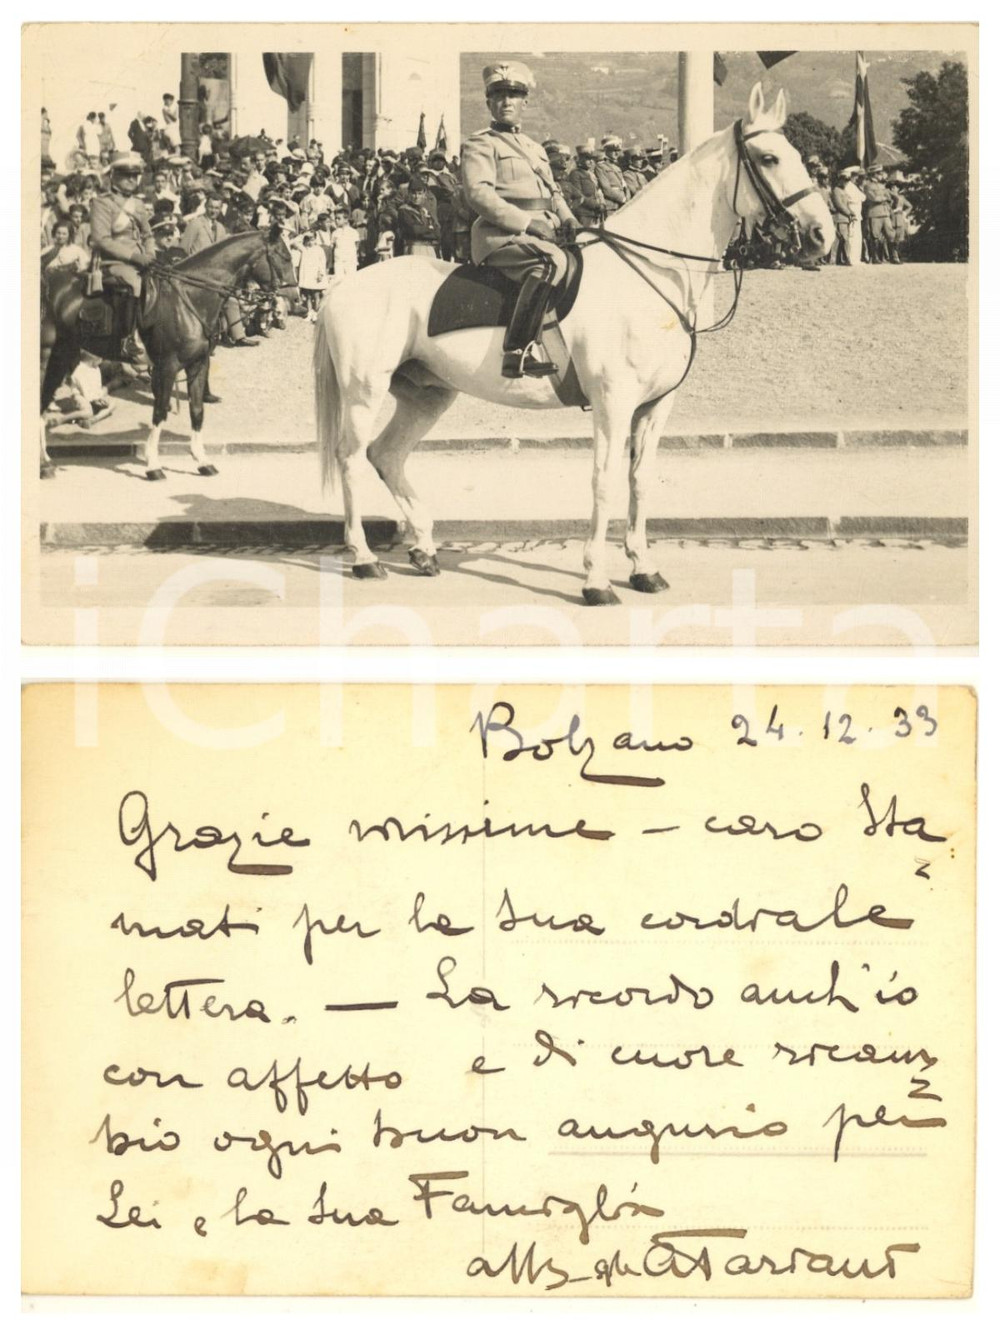 iCharta
Bolzano 24.12.33
Grazie vivissime - caro Sta
mati per la Sua cordiale
lettera. — La ricordo anch'io
con affetto e di cuore ricam
bio ogni buon augurio per
Lei e la Sua Famiglia